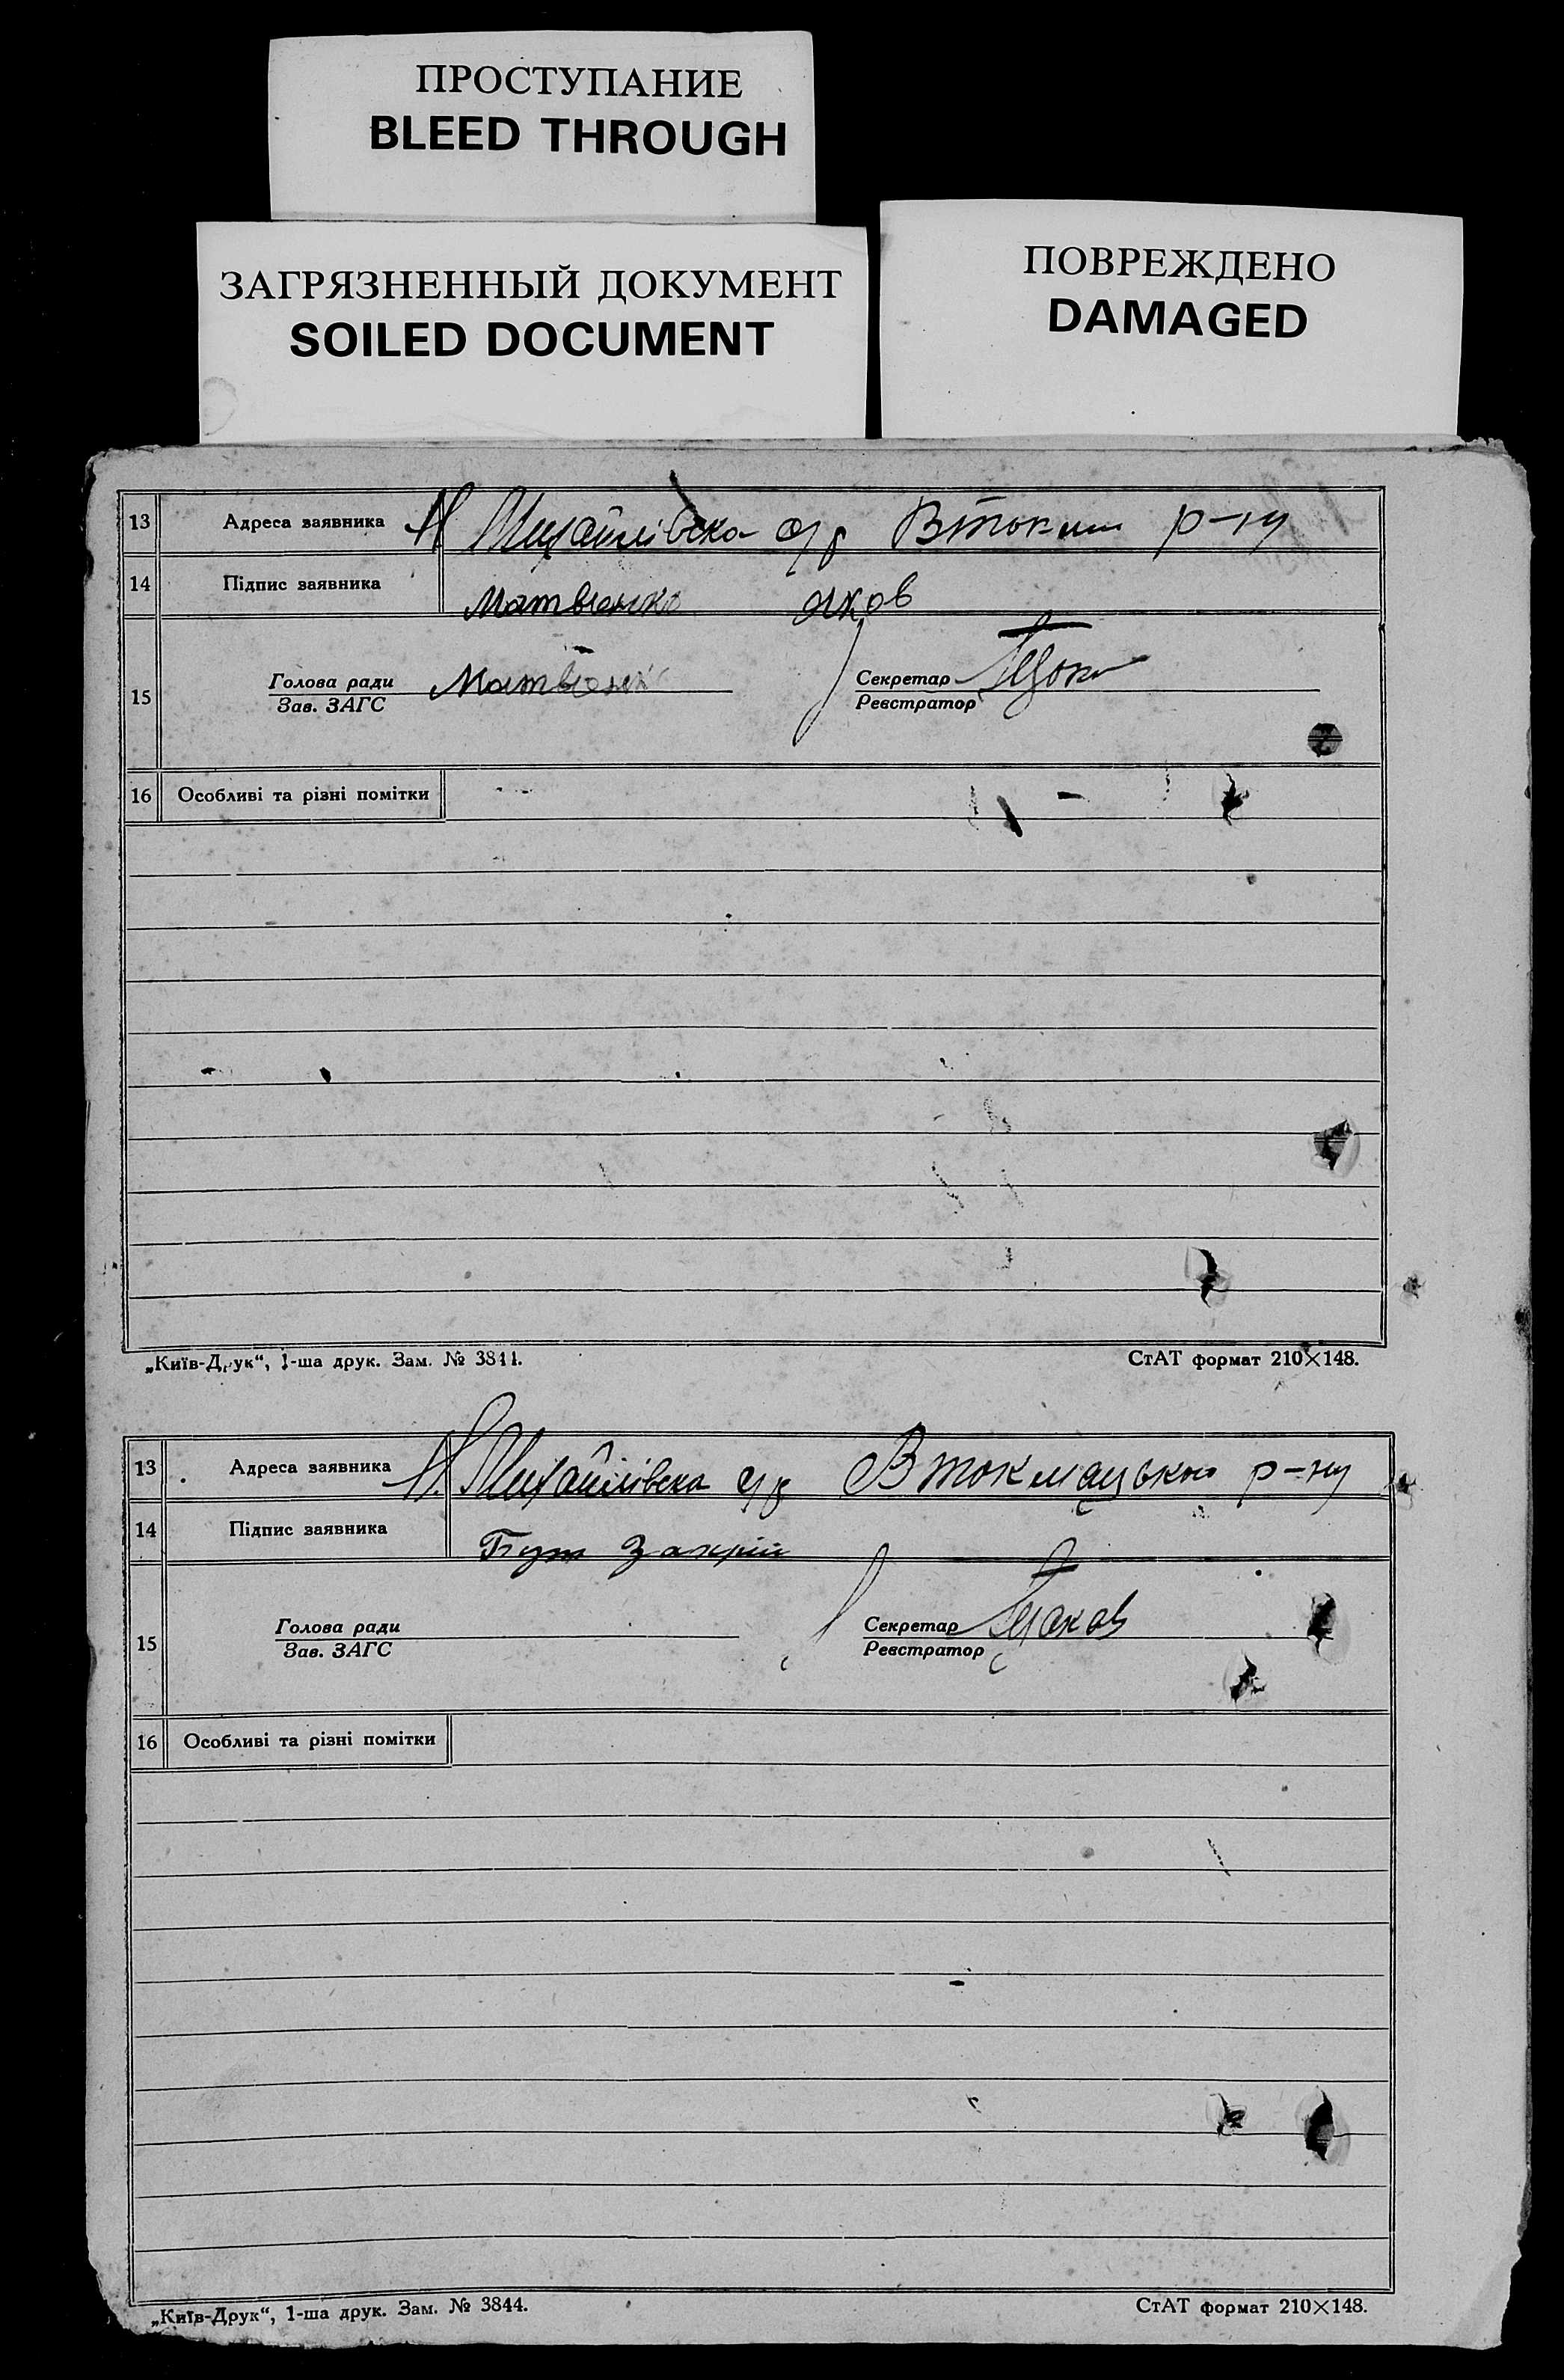 ПРОСТУПАНИЕ
BLEED THROUGH
ЗАГРЯЗНЕННЫЙ ДОКУМЕНТ
SOILED DOCUMENT
ПОВРЕЖДЕНО
DAMAGED
13 Адреса заявника Н Михайлівська с/р Втокм р-ну
14 Підпис заявника Матвієнко Яков
15 Голова ради Матвієнко Секретар
Зав. ЗАГС Реєстратор
16 Особливі та різні помітки
„Київ-Друк“, 1-ша друк. Зам. № 3844. СтАТ формат 210×148.
13 Адреса заявника Н. Михайлівська с/р Втокмацького р-ну
14 Підпис заявника Бут Захрій
15 Голова ради Секретар
Зав. ЗАГС Реєстратор
16 Особливі та різні помітки
„Київ-Друк“, 1-ша друк. Зам. № 3844. СтАТ формат 210×148.